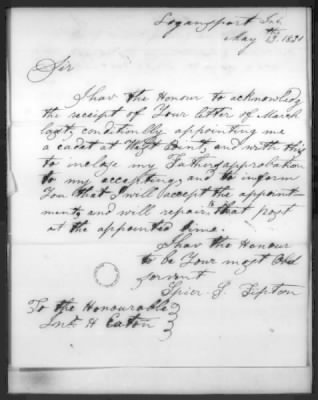 Logansport Ind.
May 13th 1831
Sir
I hav the Honour to acknowledg
the receipt of Your letter of March
last, conditionally appointing me
a cadet at West Point, and with this
to inclose my Fathers approbation
to my accepting, and to inform
You that I will accept the appoint
ment, and will repair that post
at the appointed time.
I hav the Honour
to be Your most Obd
Servent
Spier S. Tipton
To the Honourable
Jno. H Eaton